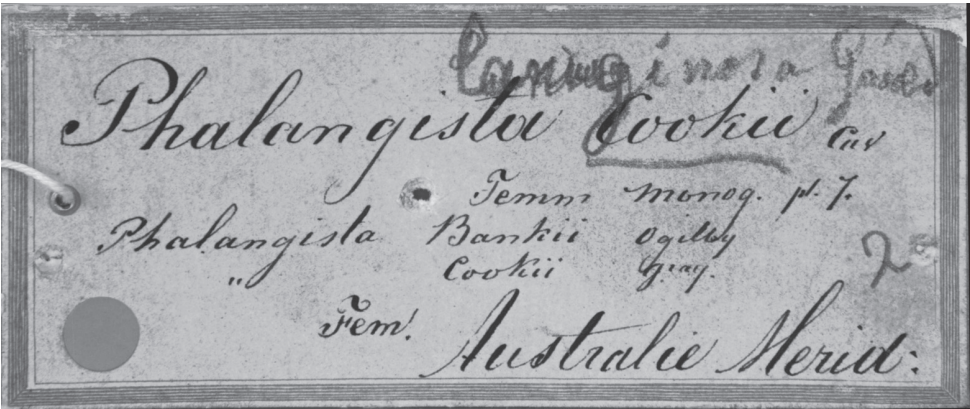 Lanuginosa Gould
Phalangista Cookii Cuv
Temm monog. pl. 7.
Phalangista Bankii Ogilby
" Cookii Gray.
2
Fem.
Australie Merid: